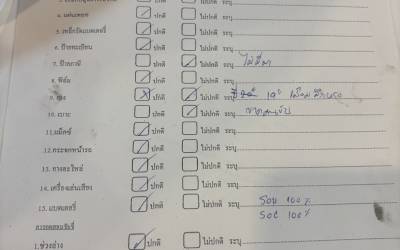 4. แผ่นเพลท ปกติ ไม่ปกติ ระบุ
5. เหล็กรัดแบตเตอรี่ ปกติ ไม่ปกติ ระบุ
6. ป้ายทะเบียน ปกติ ไม่ปกติ ระบุ
7. ป้ายภาษี ปกติ ไม่ปกติ ระบุ ไม่มีมา
8. ฟิล์ม ปกติ ไม่ปกติ ระบุ
9. ปกติ ไม่ปกติ ระบุ
10. เบาะ ปกติ ไม่ปกติ ระบุ
11. แม็คซ์ ปกติ ไม่ปกติ ระบุ
12. กระจกหน้ารถ ปกติ ไม่ปกติ ระบุ
13. ปกติ ไม่ปกติ ระบุ
14. เครื่องเล่นเสียง ปกติ ไม่ปกติ ระบุ
15. แบตเตอรี่ ปกติ ไม่ปกติ ระบุ SOH 100%
SOC 100%
1. ช่วงล่าง ปกติ ไม่ปกติ ระบุ